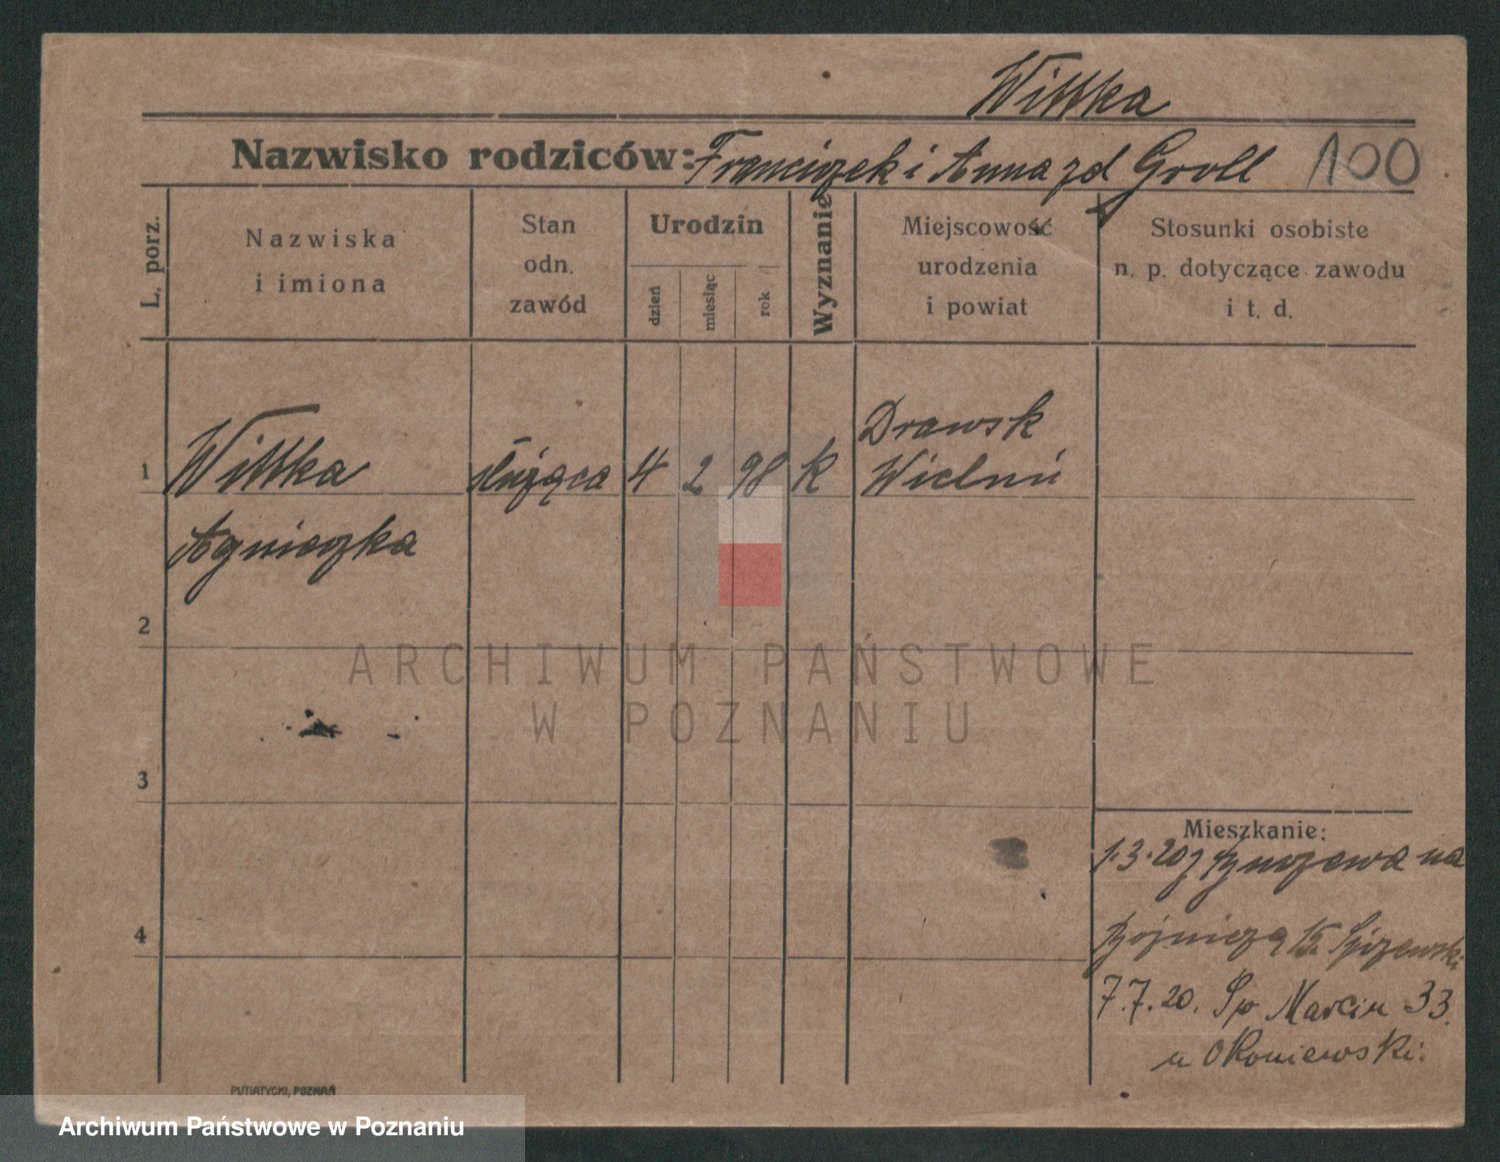 Wittka
Nazwisko rodziców: Franciszek i Anna zd Groll 100
L. porz.
Nazwiska
i imiona
Stan
odn.
zawód
Urodzin
dzień
miesiąc
rok
Wyznanie
Miejscowość
urodzenia
i powiat
Stosunki osobiste
n. p. dotyczące zawodu
i t. d.
1 Wittka służąca 4 2 98 k Drawsk
Wieluń
Agnieszka
2
3
4
Mieszkanie:
1.3.20 z na
7.7.20. Św Marcin 33.
u Okoniewski:
PUTIATYCKI, POZNAŃ
ARCHIWUM PAŃSTWOWE
W POZNANIU
Archiwum Państwowe w Poznaniu